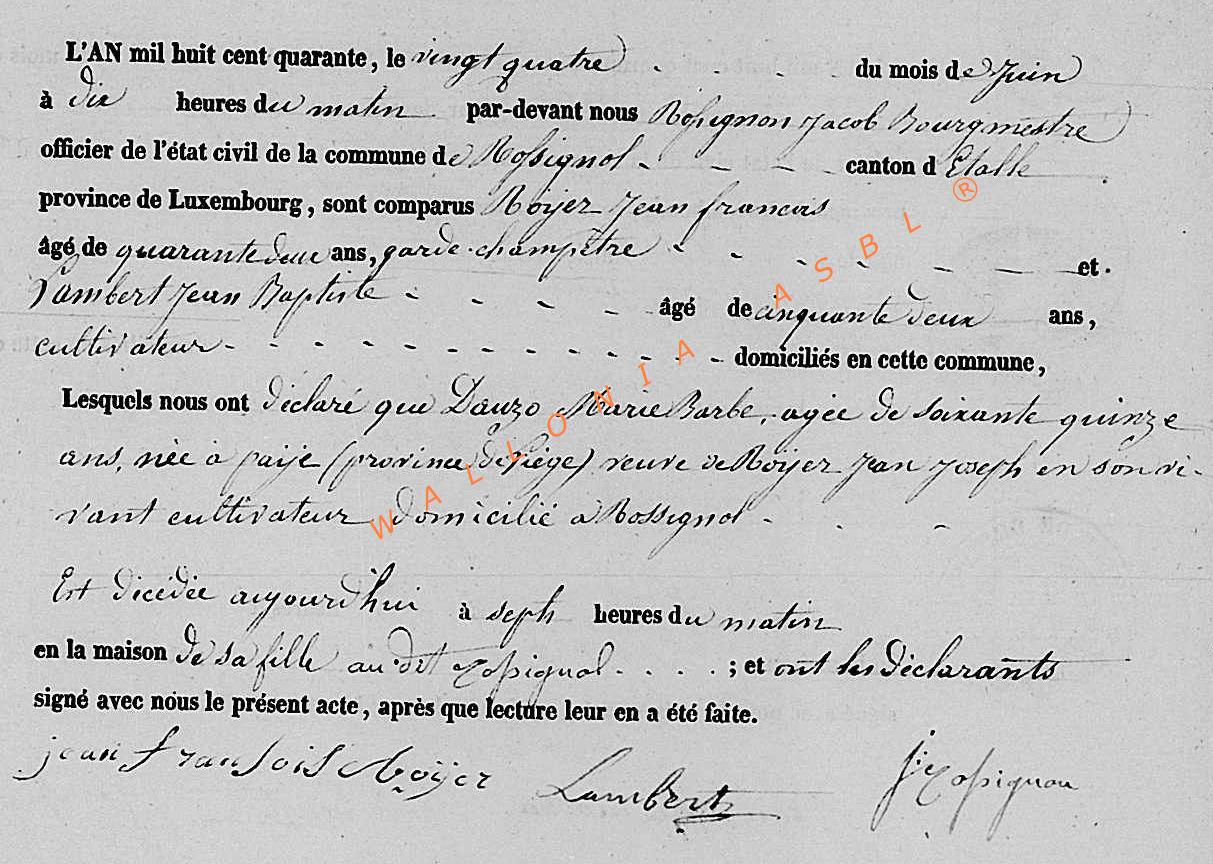 L'AN mil huit cent quarante, le vingt quatre - - du mois de Juin
à dix heures du matin par-devant nous Rossignon Jacob Bourgmestre
officier de l'état civil de la commune de Rossignol - - - - canton d'Etalle
province de Luxembourg, sont comparus Roÿer Jean francois
âgé de quarante deux ans, garde-champêtre - - - - - - - et
Lambert Jean Baptiste - - - - - âgé de cinquante deux ans,
cultivateur - - - - - - - - - - - - domiciliés en cette commune,
Lesquels nous ont déclaré que Dauzo Marie Barbe, agée de soixante quinze
ans, née à (province de Liège) veuve de Roÿer Jean Joseph en son vi-
vant cultivateur domicilié à Rossignol - - -
Est décédée aujourd'hui à seph heures du matin
en la maison de sa fille au dit Rossignol - - - - ; et ont les déclarants
signé avec nous le présent acte, après que lecture leur en a été faite.
jean fransois Roÿer Lambert J. Rossignon
WALLONIA ASBL ®